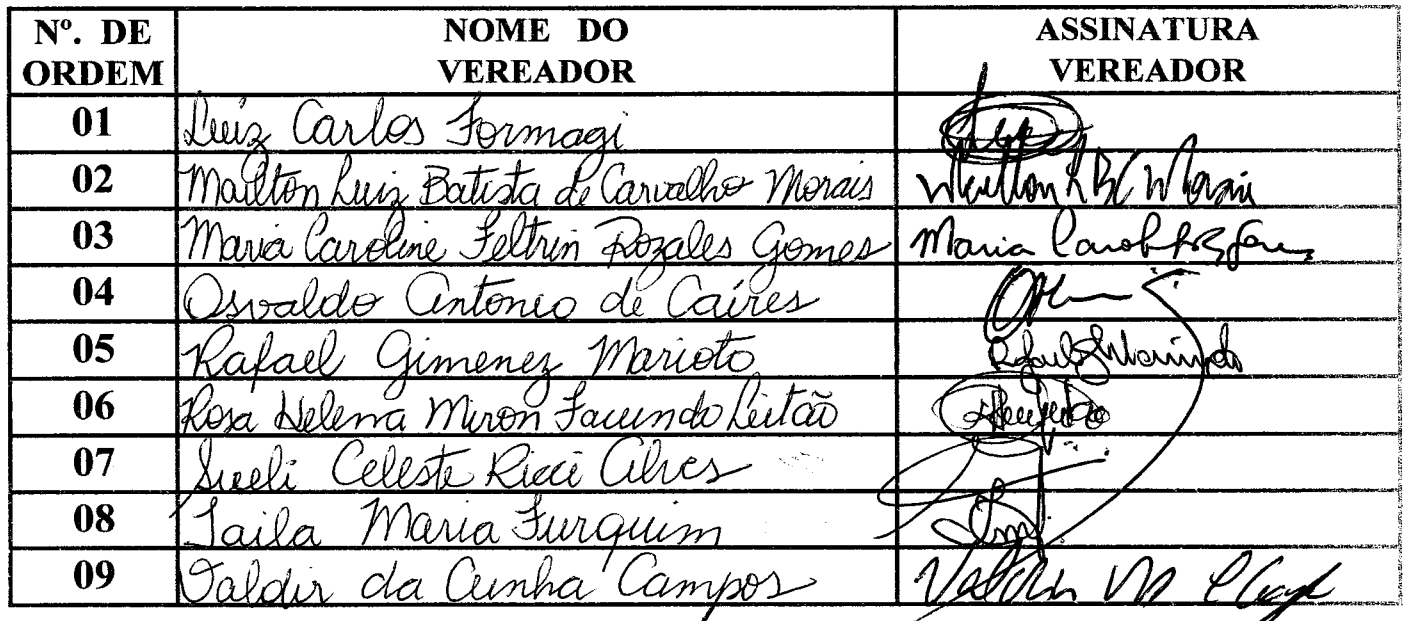 Nº. DE ORDEM NOME DO VEREADOR ASSINATURA VEREADOR
01 Luiz Carlos Formagi
02 Mailton Luiz Batista de Carvalho Morais
03 Maria Caroline Feltrin Rozales Gomes Maria
04 Osvaldo Antonio de Caires
05 Rafael Gimenez Marioto
06 Rosa Helena Miron Facundo Leitão
07 Sueli Celeste Ricci Alves
08 Taila Maria Furquim
09 Valdir da Cunha Campos